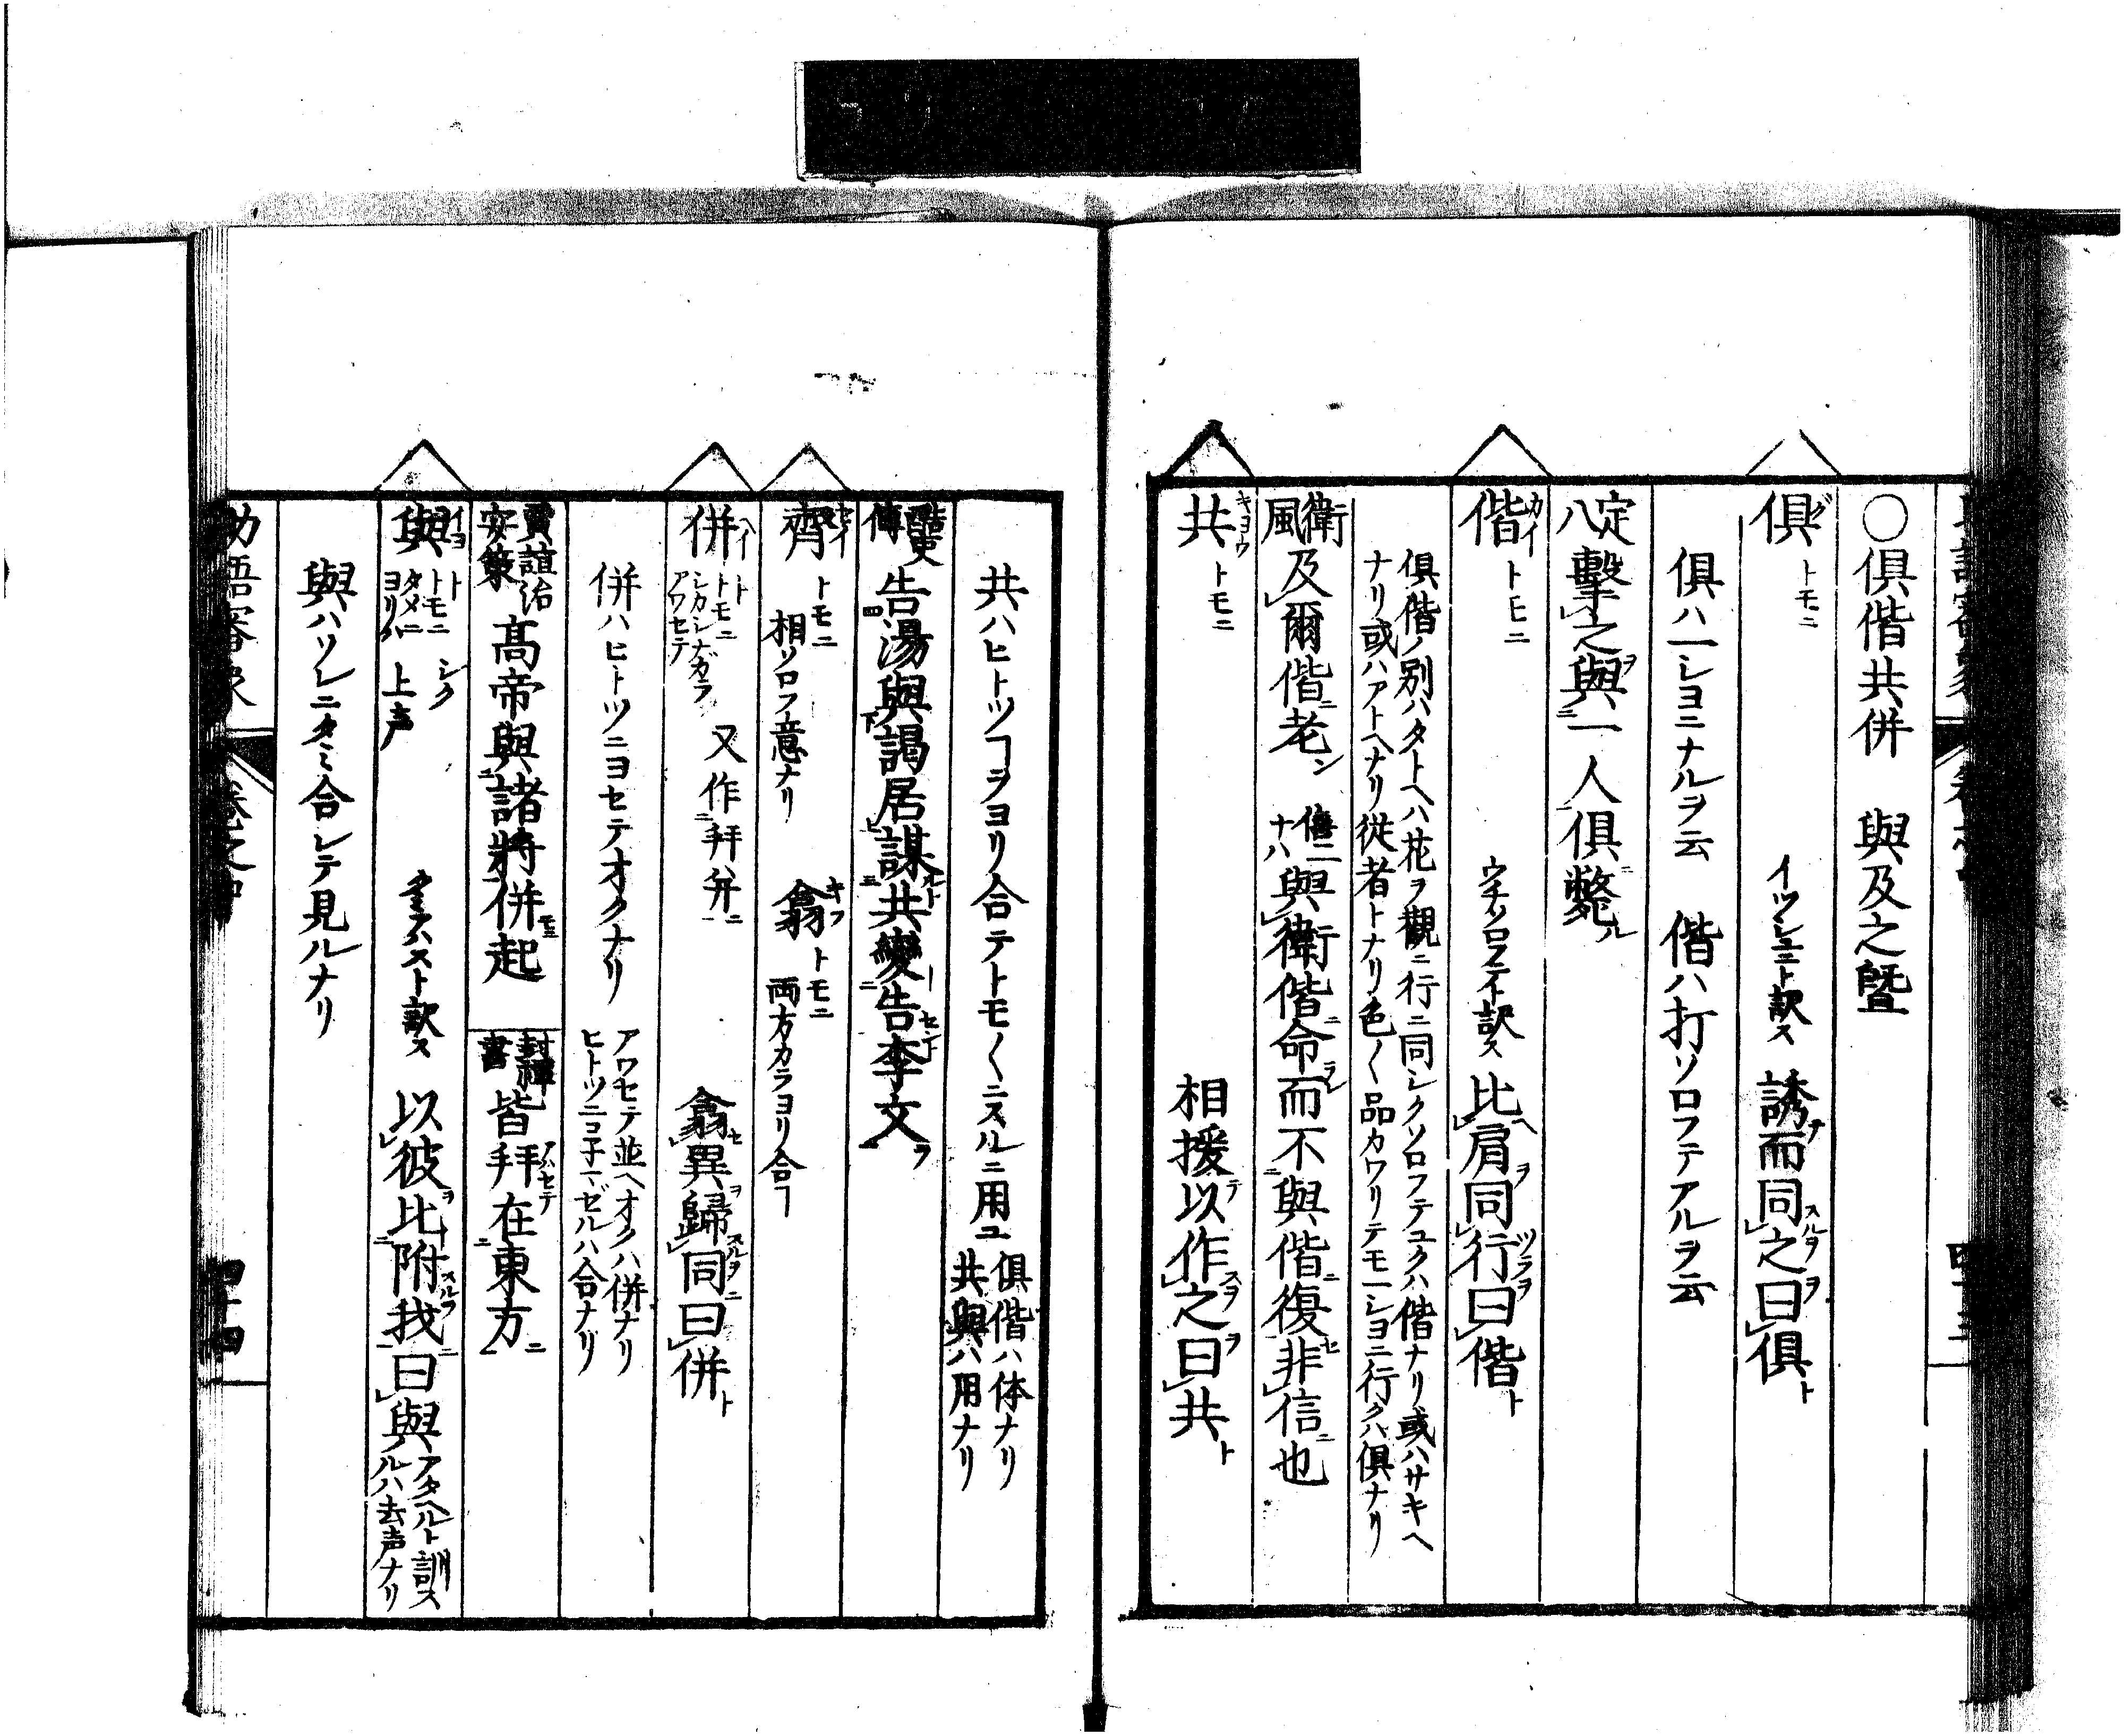 ○俱偕共併　與及之曁
俱　トモニ　イツシヨニト訳ス　誘而同之曰俱
俱ハ一シヨニナルヲ云　偕ハ打ソロフテアルヲ云
定八　擊之與一人俱斃
偕　カイ　トモニ　ウチソロフテト訳ス　比肩同行曰偕
俱偕ノ別ハタトヘハ花ヲ觀ニ行ニ同シクソロフテユクハ偕ナリ或ハサキヘ
ナリ或ハアトヘナリ從者トナリ色〱品カワリテモ一シヨニ行クハ俱ナリ
衛風　及爾偕老　僖二十八　與衛偕命而不與偕復非信也
共　キヨウ　トモニ　相援以作之曰共
共ハヒトツヿヲヨリ合テトモ〱ニスルニ用ユ　俱偕ハ体ナリ
共與ハ用ナリ
酷吏傳　告湯與謁居謀共變告李文
齊　セイ　トモニ　相ソロフ意ナリ　翕　キフ　トモニ　両方カラヨリ合ヿ
併　ヘイ　トモニ　シカシナガラ　アワセテ　又作拜幷　翕異歸同曰併
併ハヒトツニヨセテオクナリ　アワセテ並ヘオクハ併ナリ
ヒトツニコ子マゼルハ合ナリ
賈誼治安策　高帝與諸將併起　封禪書　皆拜在東方
與　イヨ　ト　トモニ　タメニ　ヨリハ　シク　上声　訳ス　以彼比附我曰與　アタヘルト訓ス
ルハ去声ナリ
與ハソレニタミ合シテ見ルナリ
助語審象　卷之中　四十四